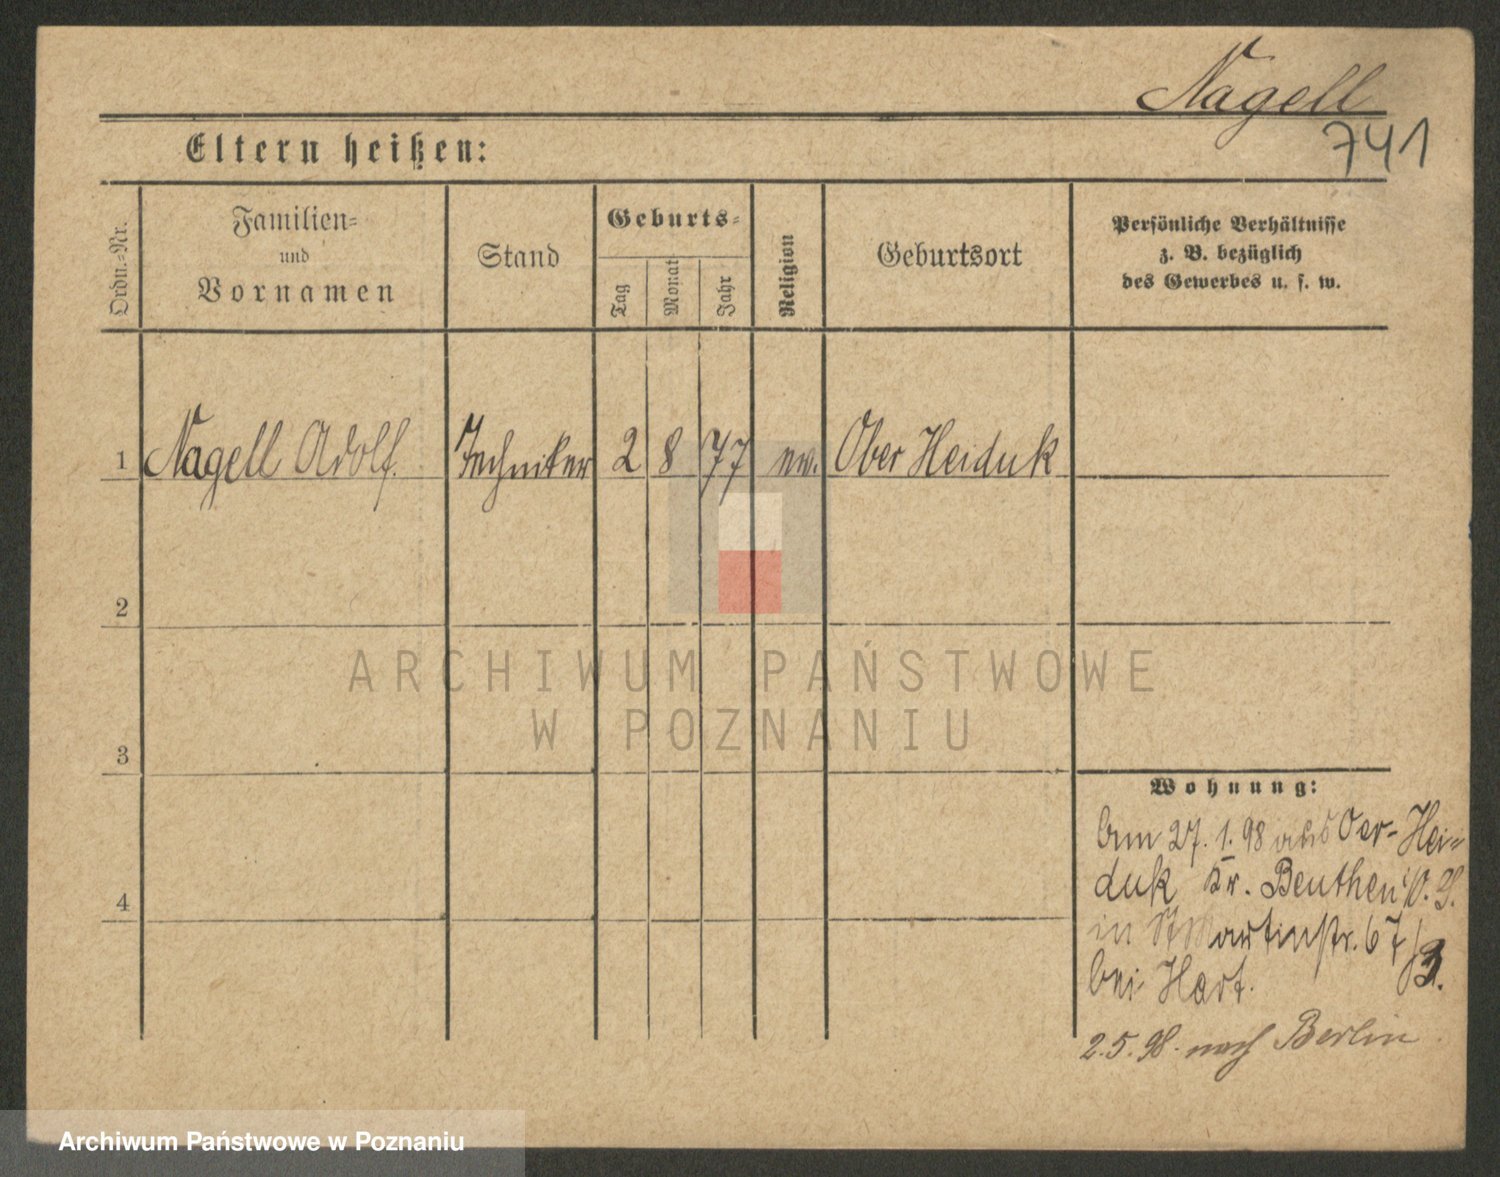 Nagell
741
Eltern heißen:
Ordn.-Nr.
Familien-
und
Vornamen
Stand
Geburts-
Tag
Monat
Jahr
Religion
Geburtsort
Persönliche Verhältnisse
z. B. bezüglich
des Gewerbes u. s. w.
1 Nagell Adolf. Techniker 2 8 77 ev. Ober Heiduk
2
3
4
Wohnung:
27. 1. 98 aus Oer-Hei-
duk Kr. Beuthen O. S.
in St Martinstr. 67/3.
bei Hart.
2. 5. 98. nach Berlin
ARCHIWUM PAŃSTWOWE
W POZNANIU
Archiwum Państwowe w Poznaniu